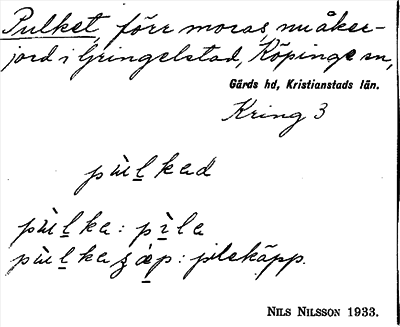 Pulket, förr moras, nu åker-
jord i Gringelstad, Köpinge sn,
Gärds hd, Kristianstads län.
Kring 3
pùḻkad
pùḻka: pìla
pùḻkaʒæp: pilskäpp.
NILS NILSSON 1933.